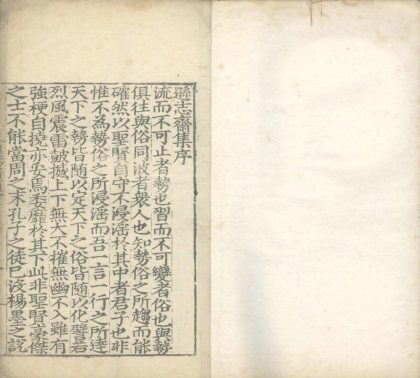 遜志齋集序
流而不可止者勢也習而不可變者俗也與勢
俱往與俗同波者衆人也知勢俗之所趨而能
確然以聖賢自守不浸淫於其中者君子也非
惟不為勢俗之所浸淫而吾一言一行之所逹
天下之勢皆隨以定天下之俗皆隨以化譬若
烈風震雷皷撼上下無大不摧無幽不入雖有
強梗自撓亦安焉委靡於其下此非聖賢豪傑
之士不能當周之末孔子之徒旣没楊墨之說